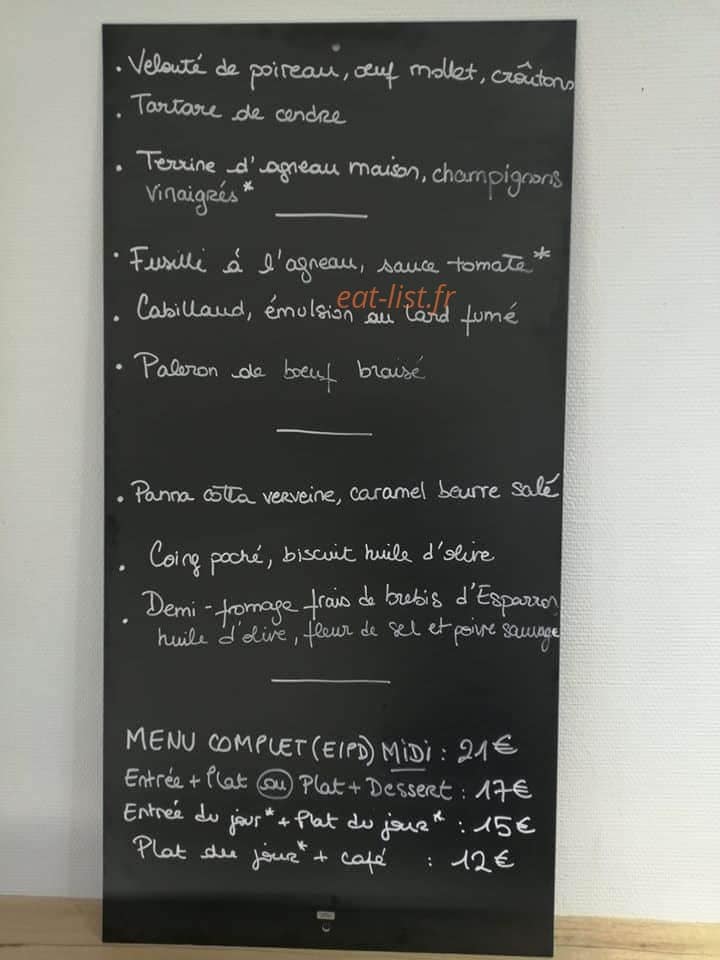 • Velouté de poireau, œuf mollet, croûtons
• Tartare de cendre
• Terrine d'agneau maison, champignons
vinaigrés*
• Fusilli à l'agneau, sauce tomate*
eat-list.fr
• Cabillaud, émulsion au lard fumé
• Paleron de boeuf braisé
• Panna cotta verveine, caramel beurre salé
• Coing poché, biscuit huile d'olive
• Demi-fromage frais de brebis d'Esparron
huile d'olive, fleur de sel et poivre sauvage
MENU COMPLET (E/P/D) MiDi : 21€
Entrée + Plat ou Plat + Dessert : 17€
Entrée du jour* + Plat du jour* : 15€
Plat du jour* + café : 12€